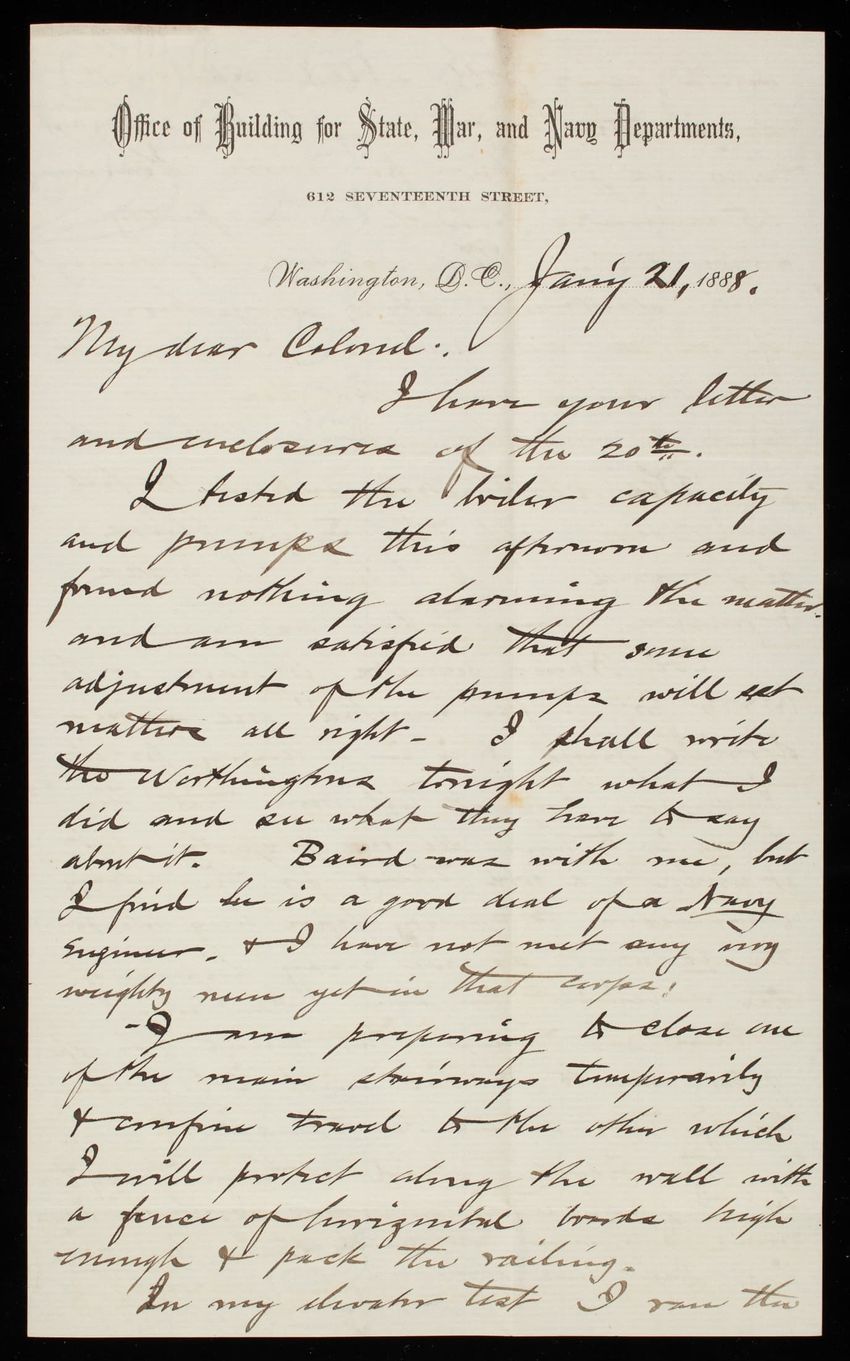 Office of Building for State, War, and Navy Departments,
612 SEVENTEENTH STREET,
Washington, D. C., Jan'y 21, 1888.
My dear Colonel:
I have your letter
and enclosures of the 20th.
I tested the boiler capacity
and pumps this afternoon and
found nothing alarming the matter.
and am satisfied that some
adjustment of the pumps will set
matters all right - I shall write
the Worthingtons tonight what I
did and see what they have to say
about it. Baird was with me, but
I find he is a good deal of a Navy
Engineer. & I have not met any very
weighty men yet in that corps!
- I am preparing to close one
of the main stairways temporarily
& confine travel to the other which
I will protect along the wall with
a fence of horizontal boards high
enough & pack the railing.
In my elevator test I ran the